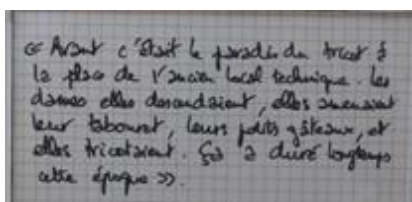 « Avant c'était le paradis du tricot à
la place de l'ancien local technique. Les
dames elles descendaient, elles amenaient
leur tabouret, leurs petits gâteaux, et
elles tricotaient. Ça a duré longtemps
cette époque ».